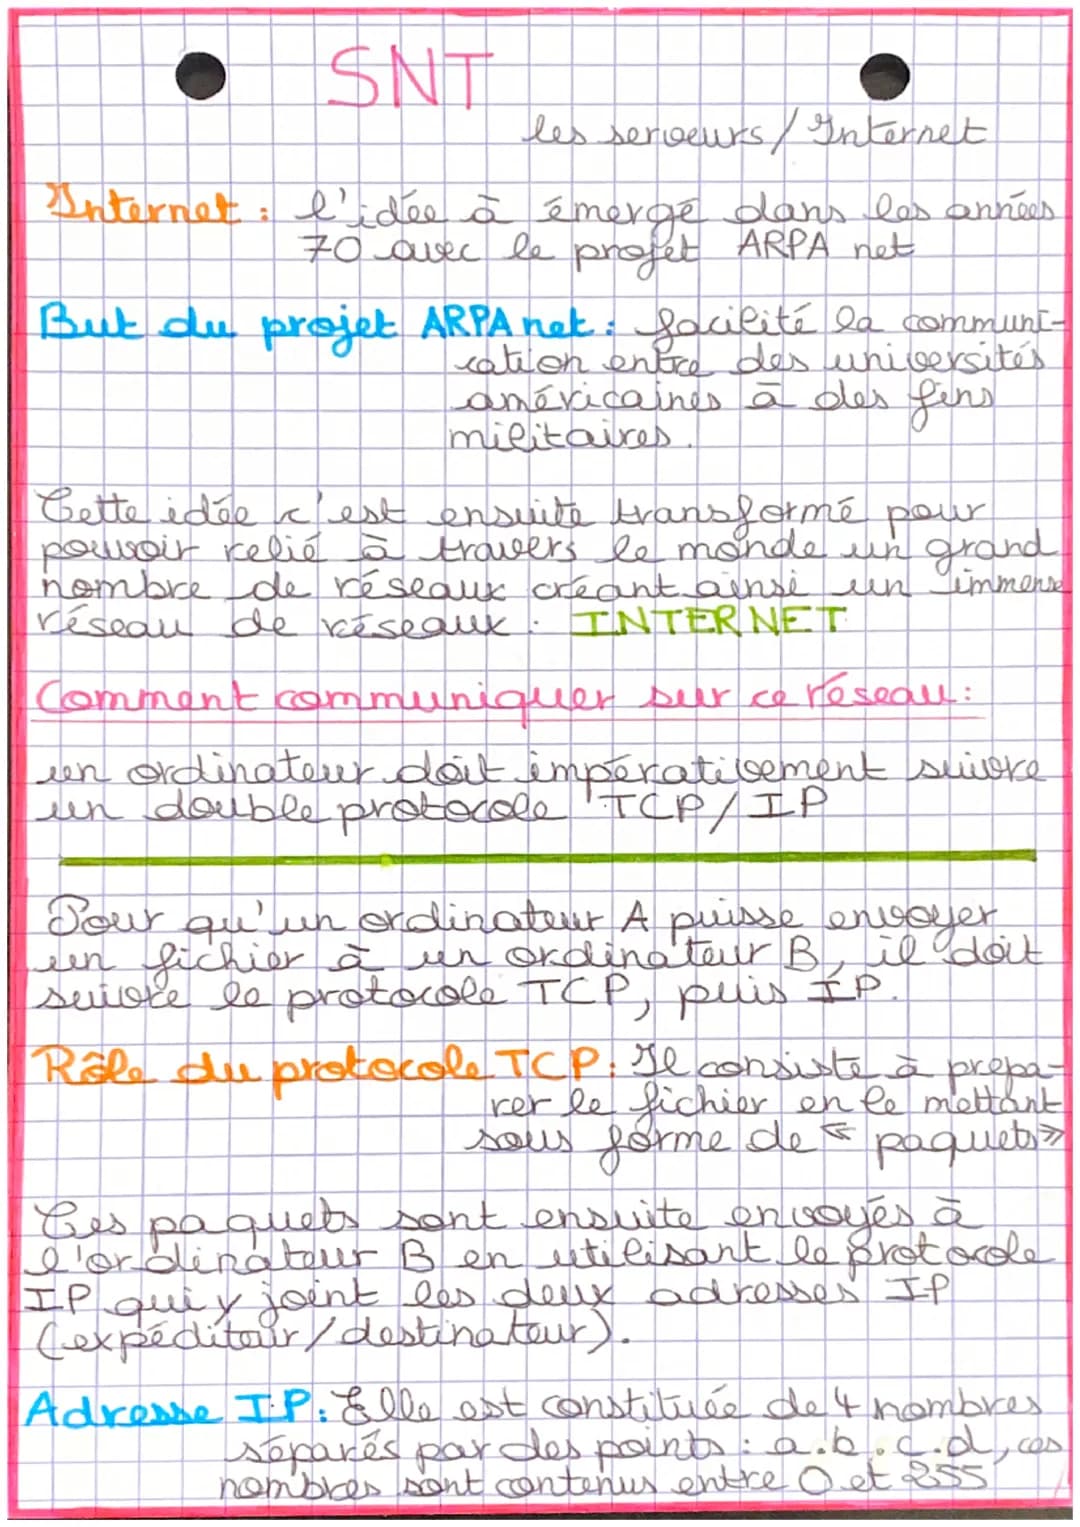 SNT
les serveurs/Internet
Internet : l'idée à émergé dans les années
70 avec le projet ARPA net
But du projet ARPA net : facilité la communi-
cation entre des universités
américaines à des fins
militaires.
Cette idée c'est ensuite transformé pour
pouvoir relié à travers le monde un grand
nombre de réseaux créant ainsi un immense
réseau de réseaux : INTERNET
Comment communiquer sur ce réseau :
un ordinateur doit impérativement suivre
un double protocole TCP/IP
Pour qu'un ordinateur A puisse envoyer
un fichier à un ordinateur B, il doit
suivre le protocole TCP, puis IP.
Rôle du protocole TCP : Il consiste à prépa-
rer le fichier en le mettant
sous forme de « paquets »
Ces paquets sont ensuite envoyés à
l'ordinateur B en utilisant le protocole
IP qui y joint les deux adresses IP
(expéditeur/destinateur).
Adresse IP : Elle est constituée de 4 nombres
séparés par des points : a.b.c.d, ces
nombres sont contenus entre 0 et 255